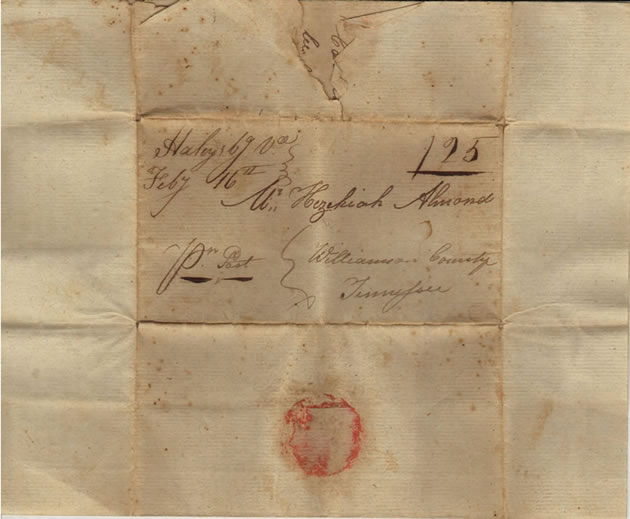 125
Feby 16th
Mr. Hezekiah Almond
pr. Post
Williamson County
Tennessee